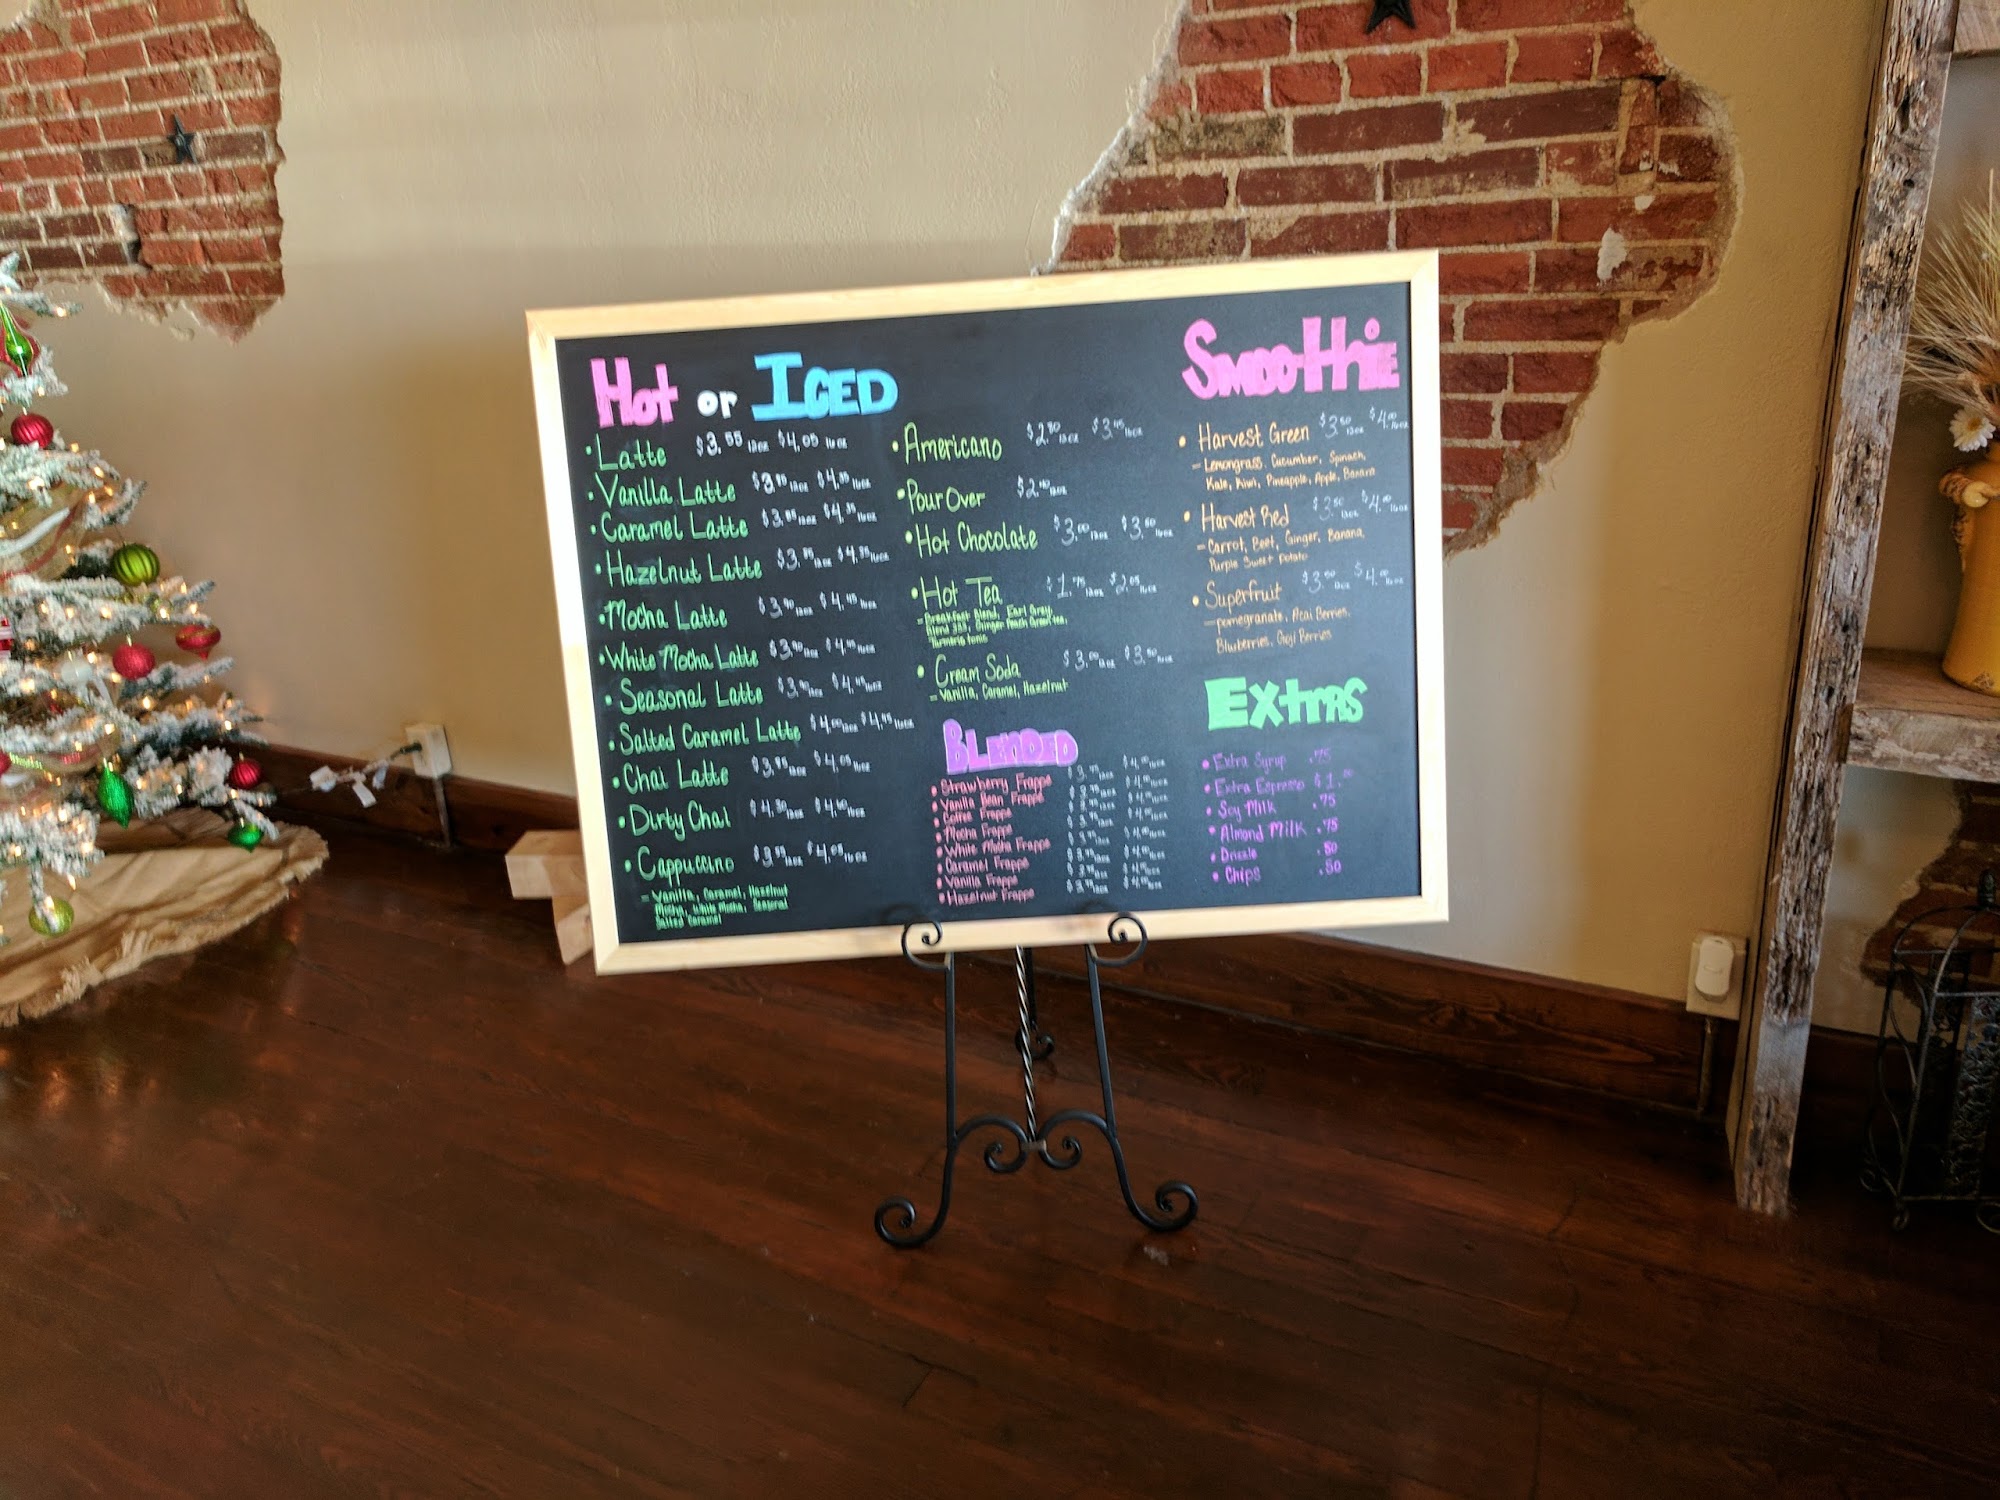 Hot or ICED
• Latte $3.55 12oz $4.05 16oz
• Vanilla Latte 12oz $4.35 16oz
• Caramel Latte 12oz $4.35 16oz
• Hazelnut Latte 12oz $4.35 16oz
• Mocha Latte 12oz $4.45 16oz
• White Mocha Latte 12oz $4.45 16oz
• Seasonal Latte 12oz $4.45 16oz
• Salted Caramel Latte $4.00 12oz $4.45 16oz
• Chai Latte 12oz $4.05 16oz
• Dirty Chai 12oz 16oz
• Cappuccino $3.55 12oz $4.05 16oz
- Vanilla, Caramel, Hazelnut
Mocha, White Mocha, Seasonal
Salted Caramel
• Americano $2.50 12oz 16oz
• Pour Over
• Hot Chocolate $3.00 12oz $3.50 16oz
• Hot Tea $1.75 12oz $2.05 16oz
- Breakfast Blend, Earl Grey,
Blend 333, Ginger Peach Green tea,
Turmeric tonic
• Cream Soda $3.00 12oz $3.50 16oz
- Vanilla, Caramel, Hazelnut
BLENDED
• Strawberry Frappe
• Vanilla Bean Frappe
• Coffee Frappe
• Mocha Frappe
• White Mocha Frappe
• Caramel Frappe
• Vanilla Frappe
• Hazelnut Frappe
Smoothie
• Harvest Green $3.50 12oz $4.00 16oz
- Lemongrass, Cucumber, Spinach,
Kale, Kiwi, Pineapple, Apple, Banana
• Harvest Red $3.50 12oz $4.00 16oz
- Carrot, Beet, Ginger, Banana,
Purple Sweet Potato
• Superfruit $3.50 12oz $4.00 16oz
- pomegranate, Acai Berries,
Blueberries, Goji Berries
Extras
• Extra Syrup .75
• Extra Espresso $1.00
• Soy Milk .75
• Almond Milk .75
• Drizzle .50
• Chips .50